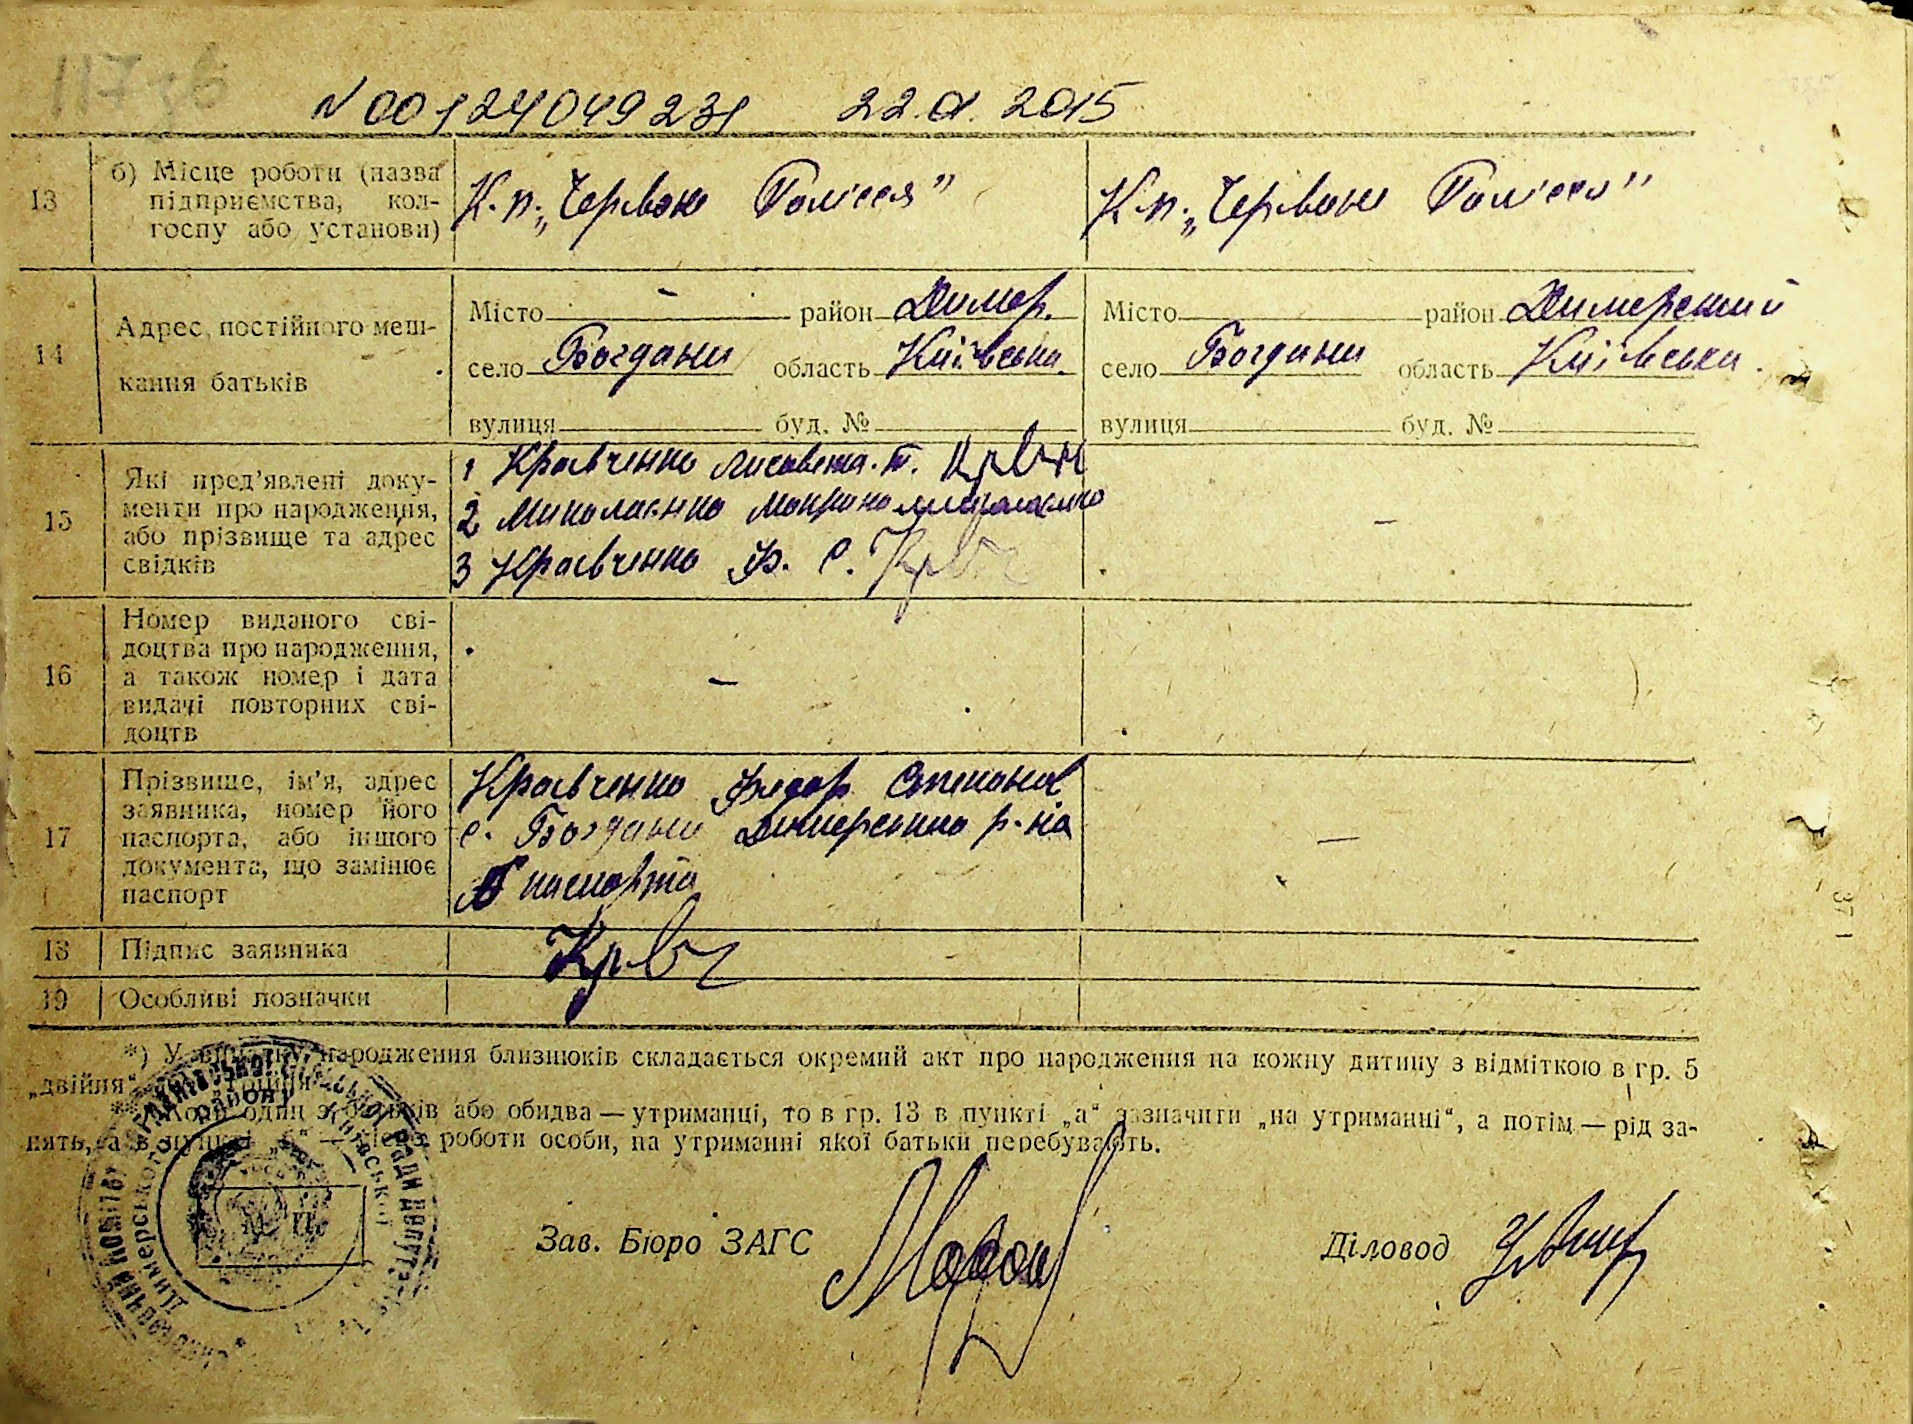 N 00124049231 22.01.2015
13 б) Місце роботи (назва підприємства, колгоспу або установи)
К-п. „Червоне Полісся” К-п. „Червоне Полісся”
14 Адрес постійного меш-
кання батьків
Місто — район Димер. Місто район Димерський
село Богдани область Київська село Богдани область Київська
вулиця буд. № вулиця буд. №
15 Які пред’явлені доку-
менти про народження,
або прізвище та адрес
свідків
1 Кравченко Лисавета. Т. Крвч
2 Миколаєнко Мокрина Миколаєнко
3 Кравченко Ф. С. Крвч
—
16 Номер виданого сві-
доцтва про народження,
а також номер і дата
видачі повторних сві-
доцтв
—
17 Прізвище, ім’я, адрес
заявника, номер його
паспорта, або іншого
документа, що замінює
паспорт
Кравченко Федор Степанов
с. Богдани Димерського р-на
Б паспорта
—
18 Підпис заявника Крвч
19 Особливі позначки
*) У випадку народження близнюків складається окремий акт про народження на кожну дитину з відміткою в гр. 5
„двійня“ трійня
** Коли один з батьків або обидва — утриманці, то в гр. 13 в пункті „а“ зазначити „на утриманні“, а потім — рід за-
нять, а в пункті „б“ — місце роботи особи, на утриманні якої батьки перебувають.
Зав. Бюро ЗАГС Діловод
М. П.
371